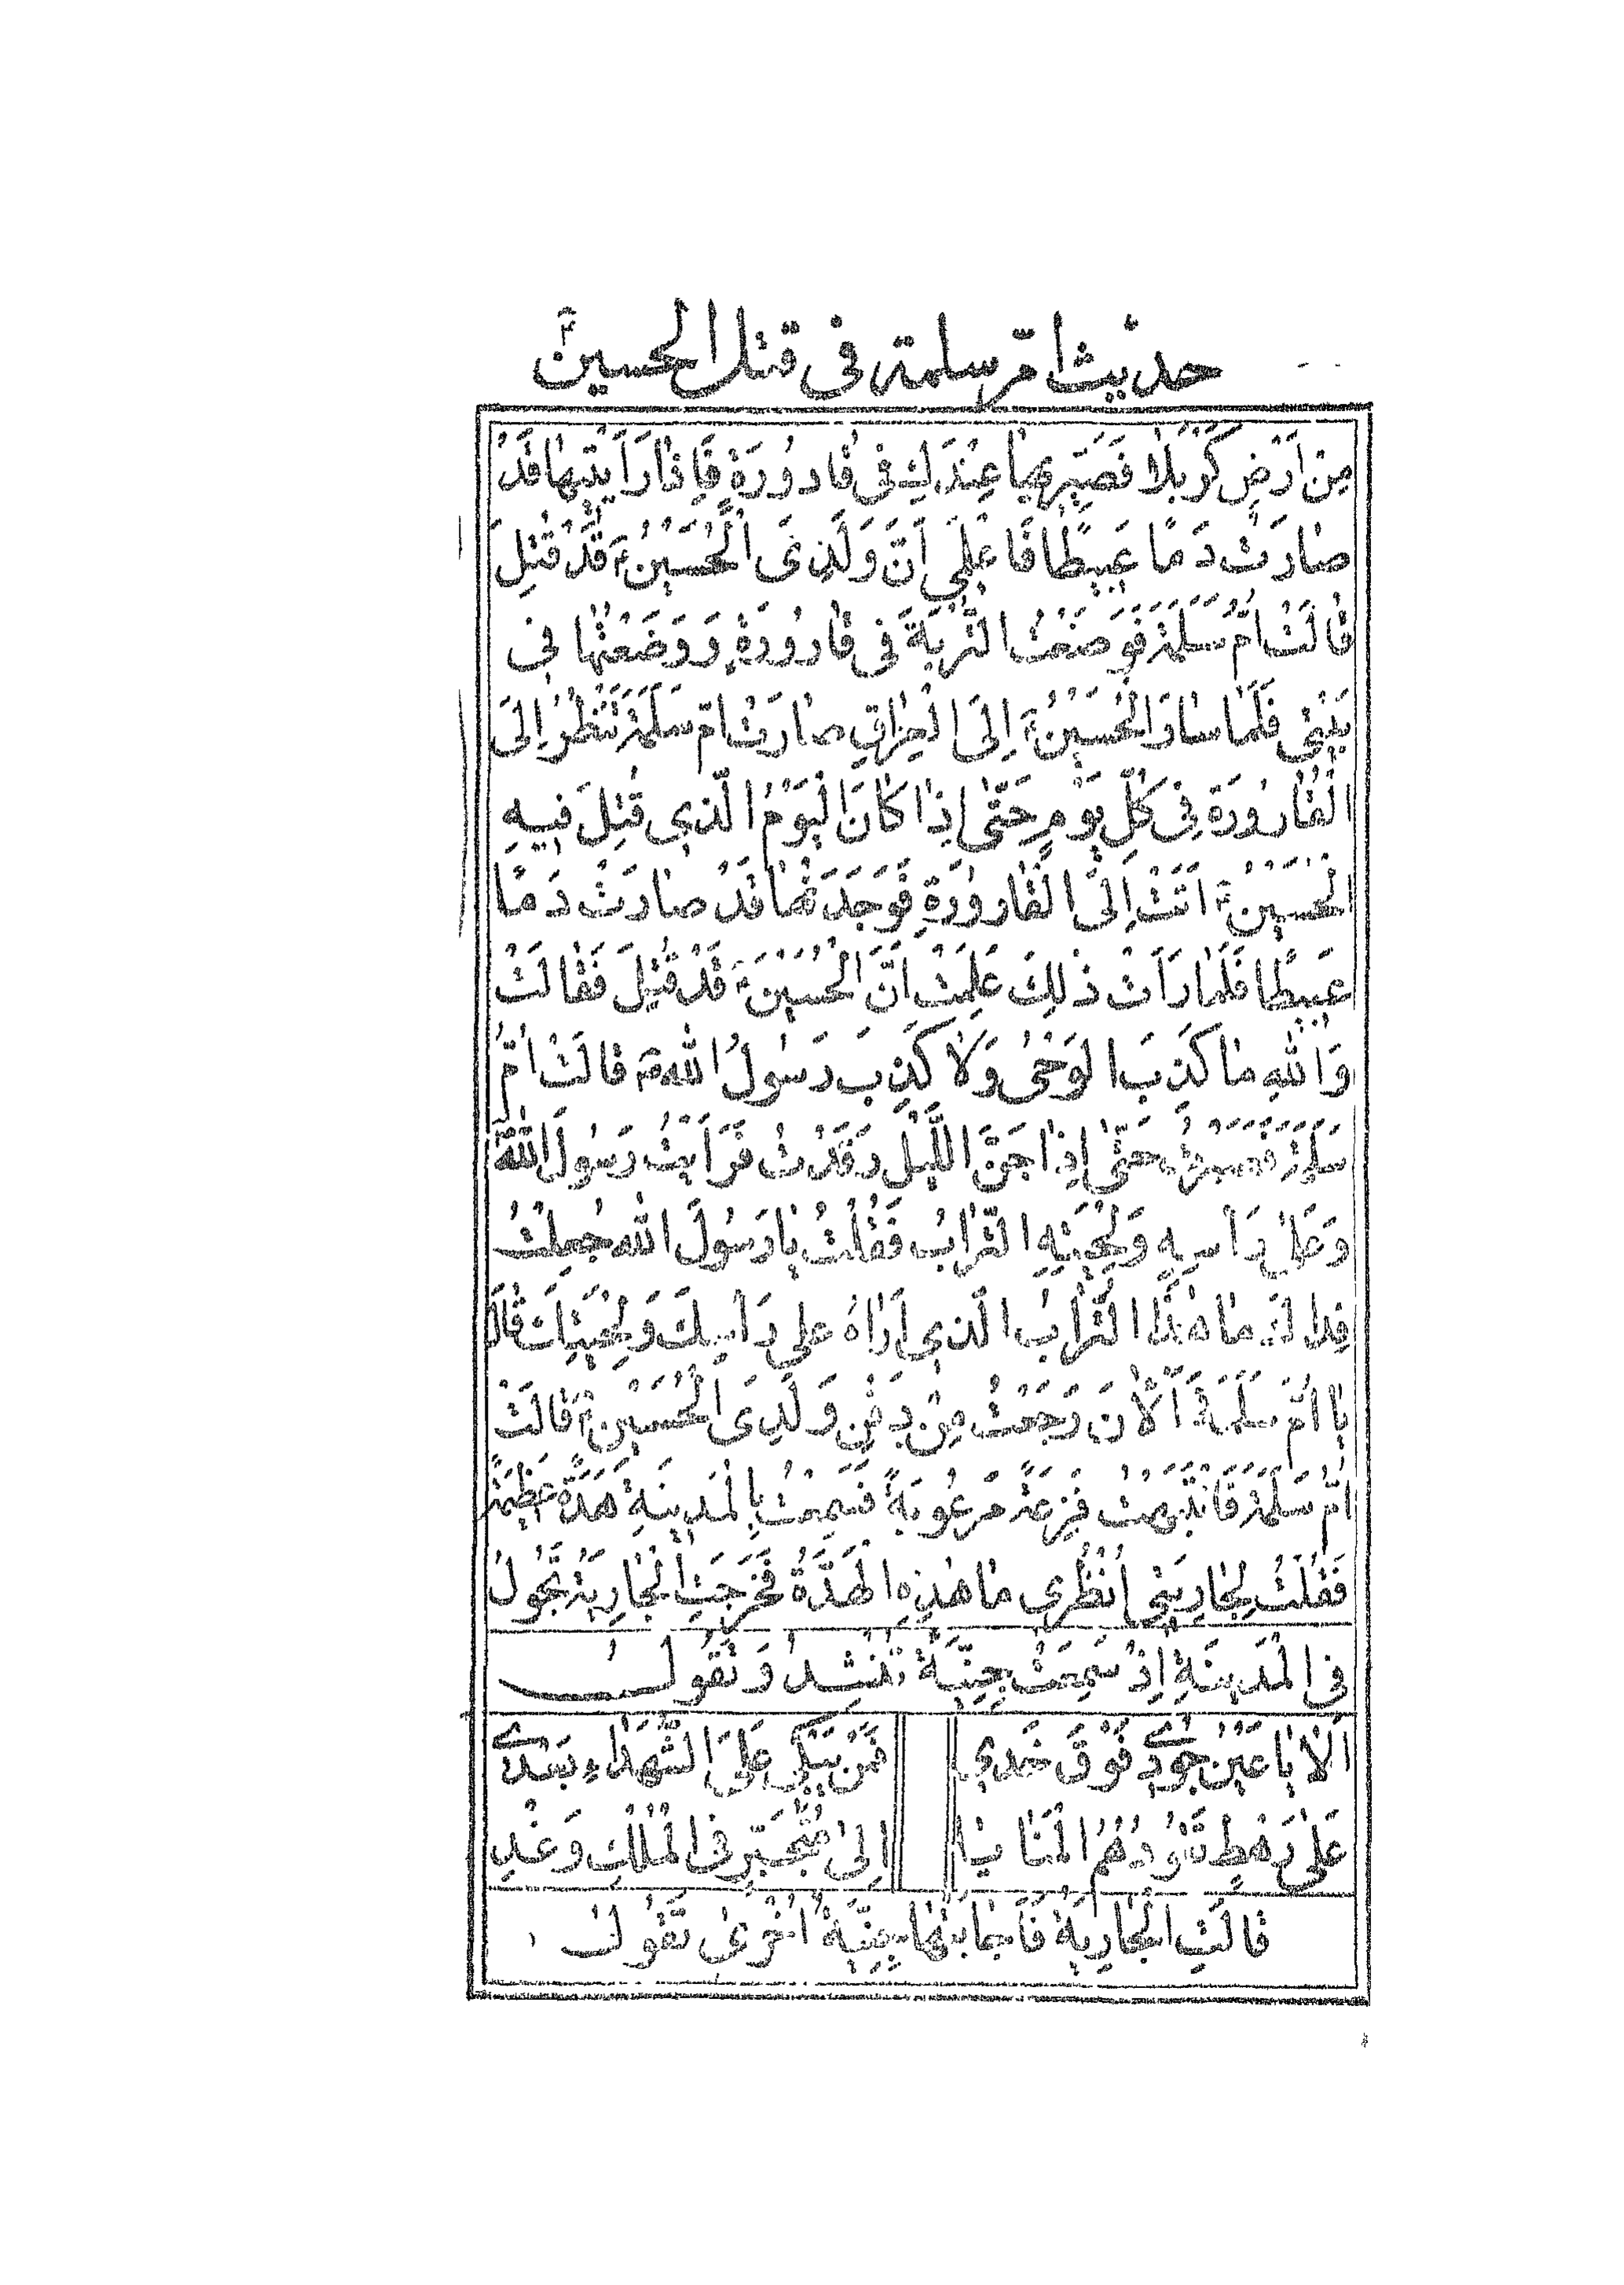 حديث امّ سلمة في قتل الحسين ع
مِنْ اَرْضِ كَرْبَلا فَصَيِّرِيهَا عِنْدَكِ فِى قٰارُورَةٍ فَاِذٰا رَاَيْتِهٰا قَدْ
صٰارَتْ دَمًا عَبِيطًا فَاعْلَمِى اَنَّ وَلَدِىَ الْحُسَيْنُ ع قَدْ قُتِلَ
قٰالَتْ اُمُّ سَلَمَةَ فَوَضَعْتُ التُّرْبَةَ فِى قٰارُورَةٍ وَوَضَعْتُهٰا فِى
بَيْتِى فَلَمّٰا سٰارَ الْحُسَيْنُ ع اِلَى الْعِرٰاقِ صٰارَتْ اُمّ سَلَمَةَ تَنْظُرُ اِلَى
الْقٰارُورَةِ فِى كُلِّ يَوْمٍ حَتّٰى اِذٰا كٰانَ الْيَوْمُ الَّذِى قُتِلَ فِيهِ
الْحُسَيْنُ ع اَتَتْ اِلَى الْقٰارُورَةِ فَوَجَدَتْهٰا قَدْ صٰارَتْ دَمًا
عَبِيطًا فَلَمّٰا رَاَتْ ذٰلِكَ عَلِمَتْ اَنَّ الْحُسَيْنَ ع قَدْ قُتِلَ فَقٰالَتْ
وَاللّٰهِ مٰا كَذَبَ الْوَحْىُ وَلٰا كَذِبَ رَسُولُ اللّٰهِ ص قٰالَتْ اُمُّ
سَلَمَةَ فَصَبَرْتُ حَتّٰى اِذٰا جَنَّ اللَّيْلُ رَقَدْتُ فَرَاَيْتُ رَسُولَ اللّٰهِ ص
وَعَلٰى رَاْسِهِ وَلِحْيَتِهِ التُّرٰابُ فَقُلْتُ يٰا رَسُولَ اللّٰهِ جُعِلْتُ
فِدٰاكَ مٰا هٰذَا التُّرٰابُ الَّذِى اَرٰاهُ عَلٰى رَاْسِكَ وَلِحْيَتِكَ قٰالَ
يٰا اُمَّ سَلَمَةَ اَلْاٰنَ رَجَعْتُ مِنْ دَفْنِ وَلَدِىَ الْحُسَيْنِ ع قٰالَتْ
اُمُّ سَلَمَةَ فَانْتَبَهْتُ فَزِعَةً مَرْعُوبَةً فَسَمِعْتُ بِالْمَدِينَةِ هَدَّةً عَظِيمَةً
فَقُلْتُ لِجٰارِيَتِى اِنْظُرِى مٰا هٰذِهِ الْهَدَّةُ فَخَرَجَتِ الْجٰارِيَةُ تَجُولُ
فِى الْمَدِينَةِ اِذْ سَمِعَتْ جِنِّيَّةً تُنْشِدُ وَتَقُولُ
اَلٰا يٰا عَيْنُ جُودِى فَوْقَ خَدِى فَمَنْ يَبْكِى عَلَى الشُّهَدٰاءِ بَعْدِى
عَلٰى رَهْطٍ تَقُودُهُمُ الْمَنٰايٰا اِلٰى مُتَجَبِّرٍ فِى الْمُلْكِ وَغْدِ
قٰالَتِ الْجٰارِيَةُ فَاَجٰابَتْهٰا جِنِّيَّةٌ اُخْرٰى تَقُولُ